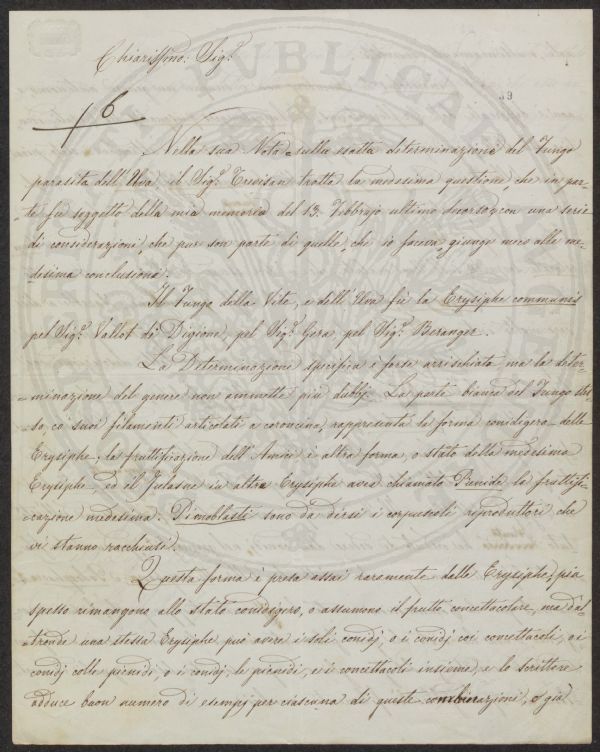 Chiarissimo: Sigr.
6
Nella sua Nota sulla esatta determinazione del Fungo
parasita dell'Uva il Sigr. Trevisan tratta la medesima questione, che in par-
te fu soggetto della mia memoria del 13. Febbrajo ultimo decorso, con una serie
di considerazioni, che pur son parte di quelle, che io faceva, giunge meco alla me-
desima conclusione.
Il Fungo della Vite, e dell'Uva fù la Erysiphe communis
pel Sigr. Vallot di Digione, pel Sigr. Gera, pel Sigr. Beranger.
La Determinazione specifica è forse arrischiata ma la deter-
minazione del genere non ammette più dubbj. La parte bianca del Fungo stes-
so co' suoi filamenti articolati a coroncina, rappresenta la forma conidigera delle
Erysiphe, la fruttificazione dell'Amici è altra forma, o stato della medesima
Erysiphe, ed il Tulasne in altra Erysiphe avea chiamata Picnide la fruttifi-
cazione medesima. Picnoblasti sono da dirsi i corpuscoli reproduttori che
vi stanno racchiusi.
Questa forma è presa assai raramente dalle Erysiphe, più
spesso rimangono allo stato conidigero, o assumono il frutto concettacolare, ma d'al-
tronde una stessa Erysiphe può avere i soli conidj, o i conidj coi concettacoli, o i
conidj colle picnidi, o i conidj, le picnidi, e i concettacoli insieme, e lo scrittore
adduce buon numero di esempj per ciascuna di queste combinazioni, o già